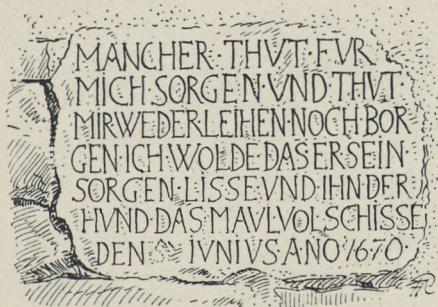 MANCHER · THVT · FVR
MICH SORGEN · VND THVT ·
MIR WEDER LEIHEN · NOCH · BOR
GEN · ICH WOLDE DAS ER SEIN ·
SORGEN · LISSE VND IHN DER
HVND · DAS MAVL VOL SCHISSE
DEN IVNIVS ANO 1670